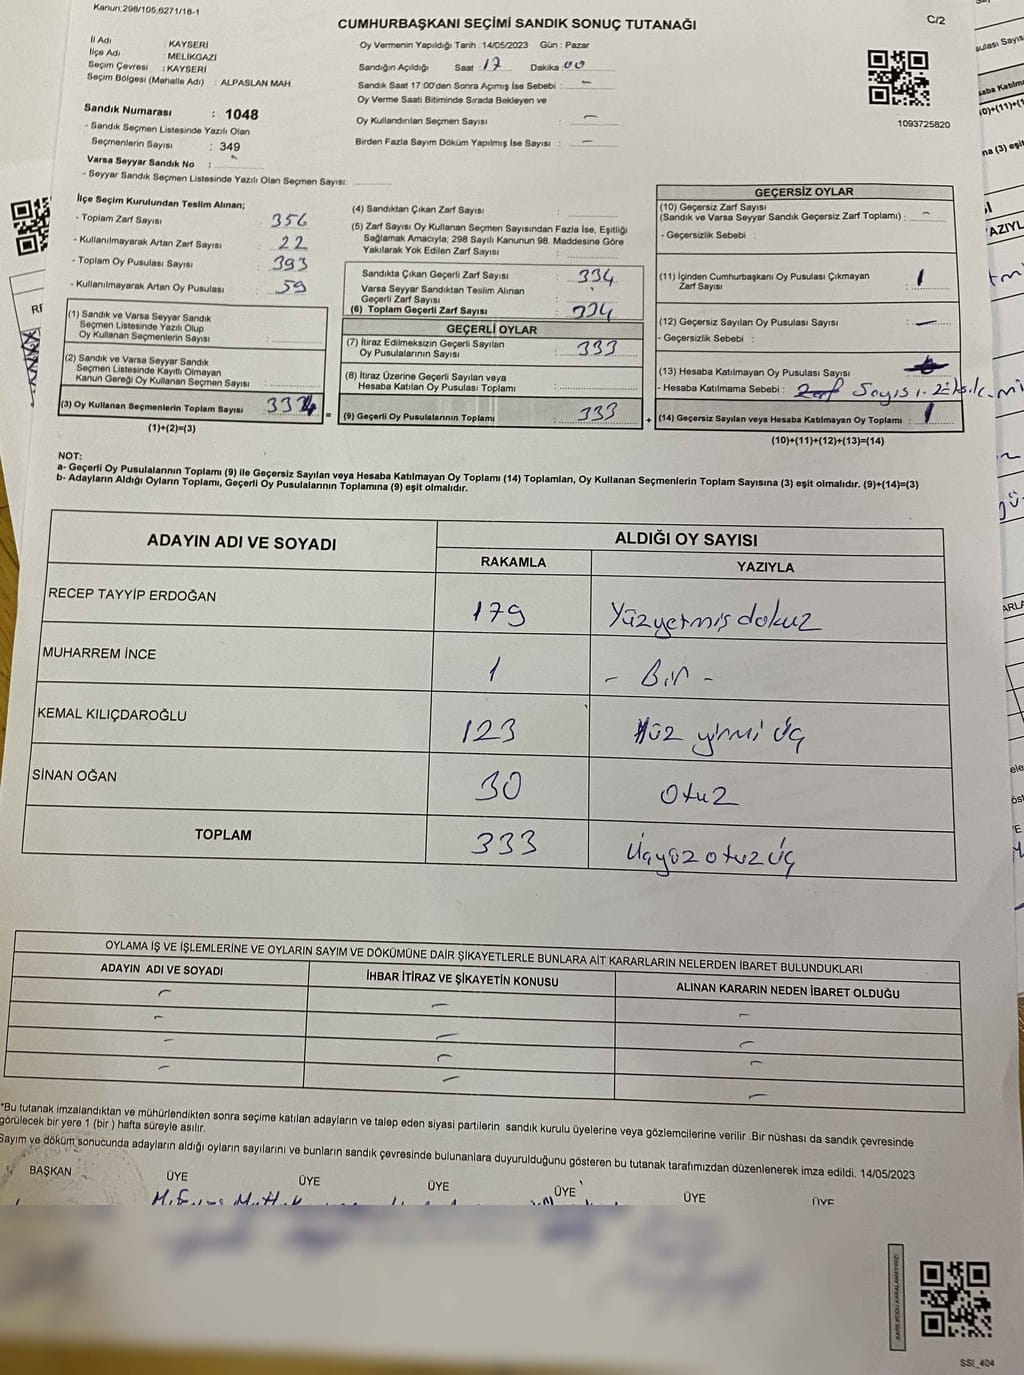 Kanun:298/105,6271/18-1
C/2
CUMHURBAŞKANI SEÇİMİ SANDIK SONUÇ TUTANAĞI
İl Adı : KAYSERİ
İlçe Adı : MELİKGAZİ
Seçim Çevresi : KAYSERİ
Seçim Bölgesi (Mahalle Adı) : ALPASLAN MAH.
Sandık Numarası : 1048
- Sandık Seçmen Listesinde Yazılı Olan
Seçmenlerin Sayısı : 349
Varsa Seyyar Sandık No :
- Seyyar Sandık Seçmen Listesinde Yazılı Olan Seçmen Sayısı:
Oy Vermenin Yapıldığı Tarih : 14/05/2023 Gün : Pazar
Sandığın Açıldığı Saat : 17 Dakika : 00
Sandık Saat 17:00'den Sonra Açımış İse Sebebi : -
Oy Verme Saati Bitiminde Sırada Bekleyen ve
Oy Kullandırılan Seçmen Sayısı : -
Birden Fazla Sayım Döküm Yapılmış İse Sayısı : -
1093725820
İlçe Seçim Kurulundan Teslim Alınan;
- Toplam Zarf Sayısı : 356
- Kullanılmayarak Artan Zarf Sayısı : 22
- Toplam Oy Pusulası Sayısı : 393
- Kullanılmayarak Artan Oy Pusulası : 59
(1) Sandık ve Varsa Seyyar Sandık
Seçmen Listesinde Yazılı Olup
Oy Kullanan Seçmenlerin Sayısı :
(2) Sandık ve Varsa Seyyar Sandık
Seçmen Listesinde Kayıtlı Olmayan
Kanun Gereği Oy Kullanan Seçmen Sayısı :
(3) Oy Kullanan Seçmenlerin Toplam Sayısı : 334 =
(1)+(2)=(3)
(4) Sandıktan Çıkan Zarf Sayısı :
(5) Zarf Sayısı Oy Kullanan Seçmen Sayısından Fazla İse, Eşitliği
Sağlamak Amacıyla, 298 Sayılı Kanunun 98. Maddesine Göre
Yakılarak Yok Edilen Zarf Sayısı :
Sandıkta Çıkan Geçerli Zarf Sayısı : 334
Varsa Seyyar Sandıktan Teslim Alınan
Geçerli Zarf Sayısı :
(6) Toplam Geçerli Zarf Sayısı : 334
GEÇERLİ OYLAR
(7) İtiraz Edilmeksizin Geçerli Sayılan
Oy Pusulalarının Sayısı : 333
(8) İtiraz Üzerine Geçerli Sayılan veya
Hesaba Katılan Oy Pusulası Toplamı :
(9) Geçerli Oy Pusulalarının Toplamı : 333 +
GEÇERSİZ OYLAR
(10) Geçersiz Zarf Sayısı
(Sandık ve Varsa Seyyar Sandık Geçersiz Zarf Toplamı) : -
- Geçersizlik Sebebi :
(11) İçinden Cumhurbaşkanı Oy Pusulası Çıkmayan
Zarf Sayısı : 1
(12) Geçersiz Sayılan Oy Pusulası Sayısı : -
- Geçersizlik Sebebi :
(13) Hesaba Katılmayan Oy Pusulası Sayısı :
- Hesaba Katılmama Sebebi : Zarf Sayısı
(14) Geçersiz Sayılan veya Hesaba Katılmayan Oy Toplamı : 1
(10)+(11)+(12)+(13)=(14)
NOT:
a- Geçerli Oy Pusulalarının Toplamı (9) ile Geçersiz Sayılan veya Hesaba Katılmayan Oy Toplamı (14) Toplamları, Oy Kullanan Seçmenlerin Toplam Sayısına (3) eşit olmalıdır. (9)+(14)=(3)
b- Adayların Aldığı Oyların Toplamı, Geçerli Oy Pusulalarının Toplamına (9) eşit olmalıdır.
ADAYIN ADI VE SOYADI ALDIĞI OY SAYISI
RAKAMLA YAZIYLA
RECEP TAYYİP ERDOĞAN 179 Yüzyetmiş dokuz
MUHARREM İNCE 1 - Bir -
KEMAL KILIÇDAROĞLU 123 Yüz yirmi üç
SİNAN OĞAN 30 Otuz
TOPLAM 333 Üçyüz otuz üç
OYLAMA İŞ VE İŞLEMLERİNE VE OYLARIN SAYIM VE DÖKÜMÜNE DAİR ŞİKAYETLERLE BUNLARA AİT KARARLARIN NELERDEN İBARET BULUNDUKLARI
ADAYIN ADI VE SOYADI İHBAR İTİRAZ VE ŞİKAYETİN KONUSU ALINAN KARARIN NEDEN İBARET OLDUĞU
*Bu tutanak imzalandıktan ve mühürlendikten sonra seçime katılan adayların ve talep eden siyasi partilerin sandık kurulu üyelerine veya gözlemcilerine verilir .Bir nüshası da sandık çevresinde
görülecek bir yere 1 (bir ) hafta süreyle asılır.
Sayım ve döküm sonucunda adayların aldığı oyların sayılarını ve bunların sandık çevresinde bulunanlara duyurulduğunu gösteren bu tutanak tarafımızdan düzenlenerek imza edildi. 14/05/2023
BAŞKAN ÜYE ÜYE ÜYE ÜYE ÜYE ÜYE
SSI_404